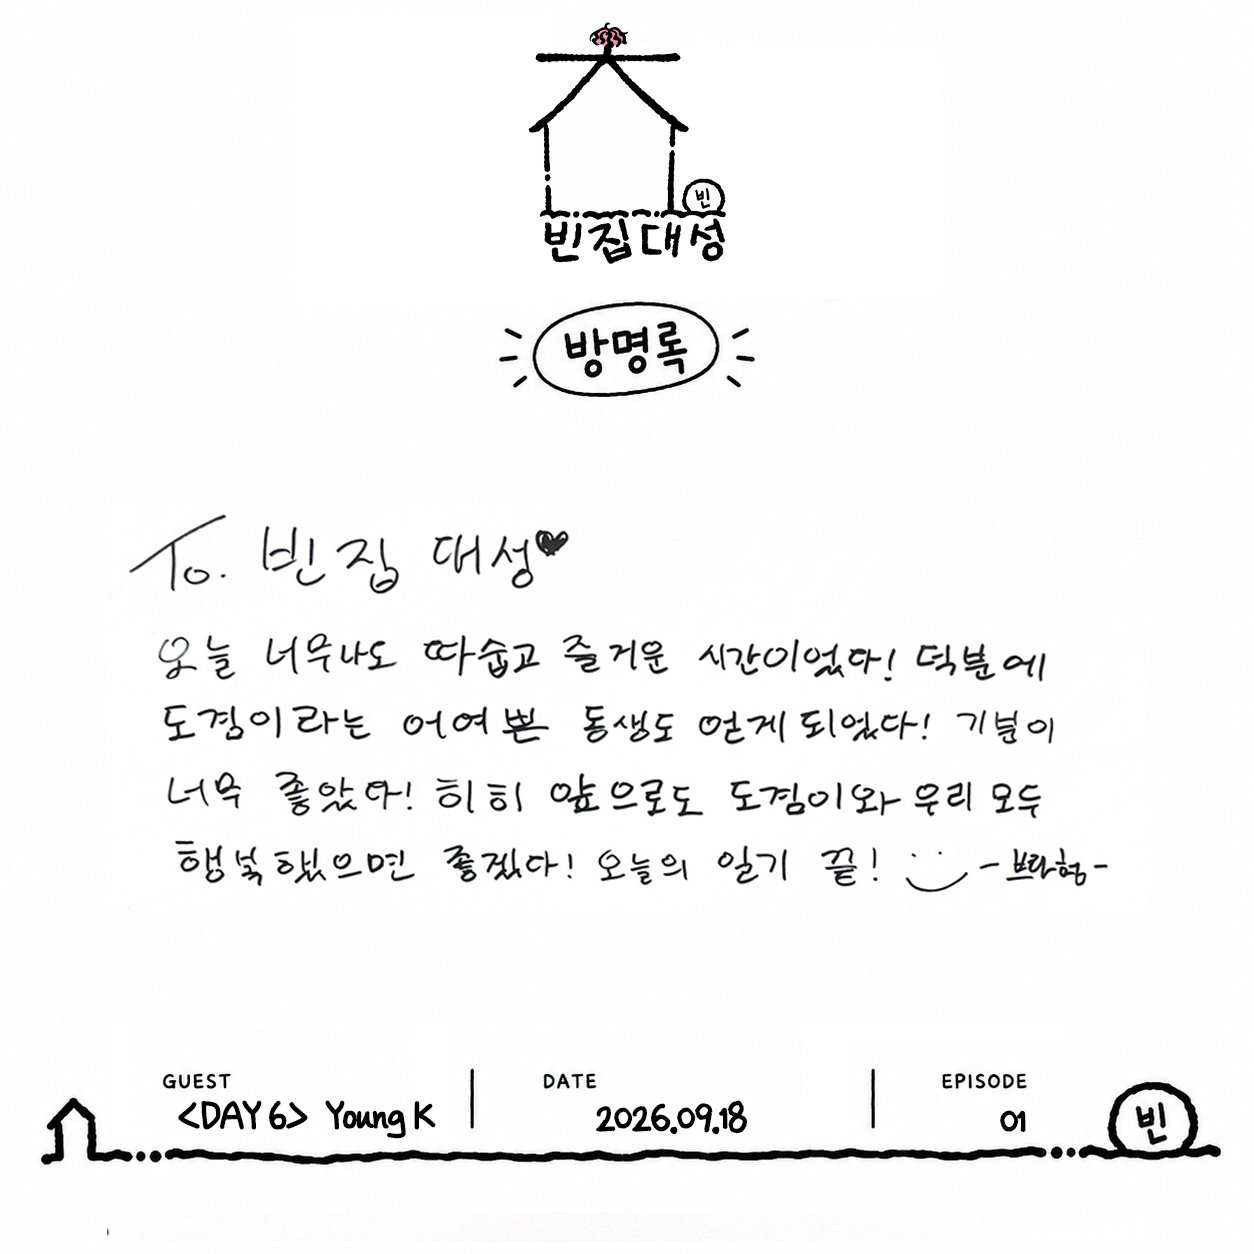 빈
빈집대성
방명록
To. 빈집 대성♥
오늘 너무나도 따숩고 즐거운 시간이었다! 덕분에
도겸이라는 어여쁜 동생도 얻게 되었다! 기분이
너무 좋았다! 히히 앞으로도 도겸이와 우리 모두
행복했으면 좋겠다! 오늘의 일기 끝! -브라형-
GUEST DATE EPISODE
<DAY6> Young K 2026.09.18 01
빈